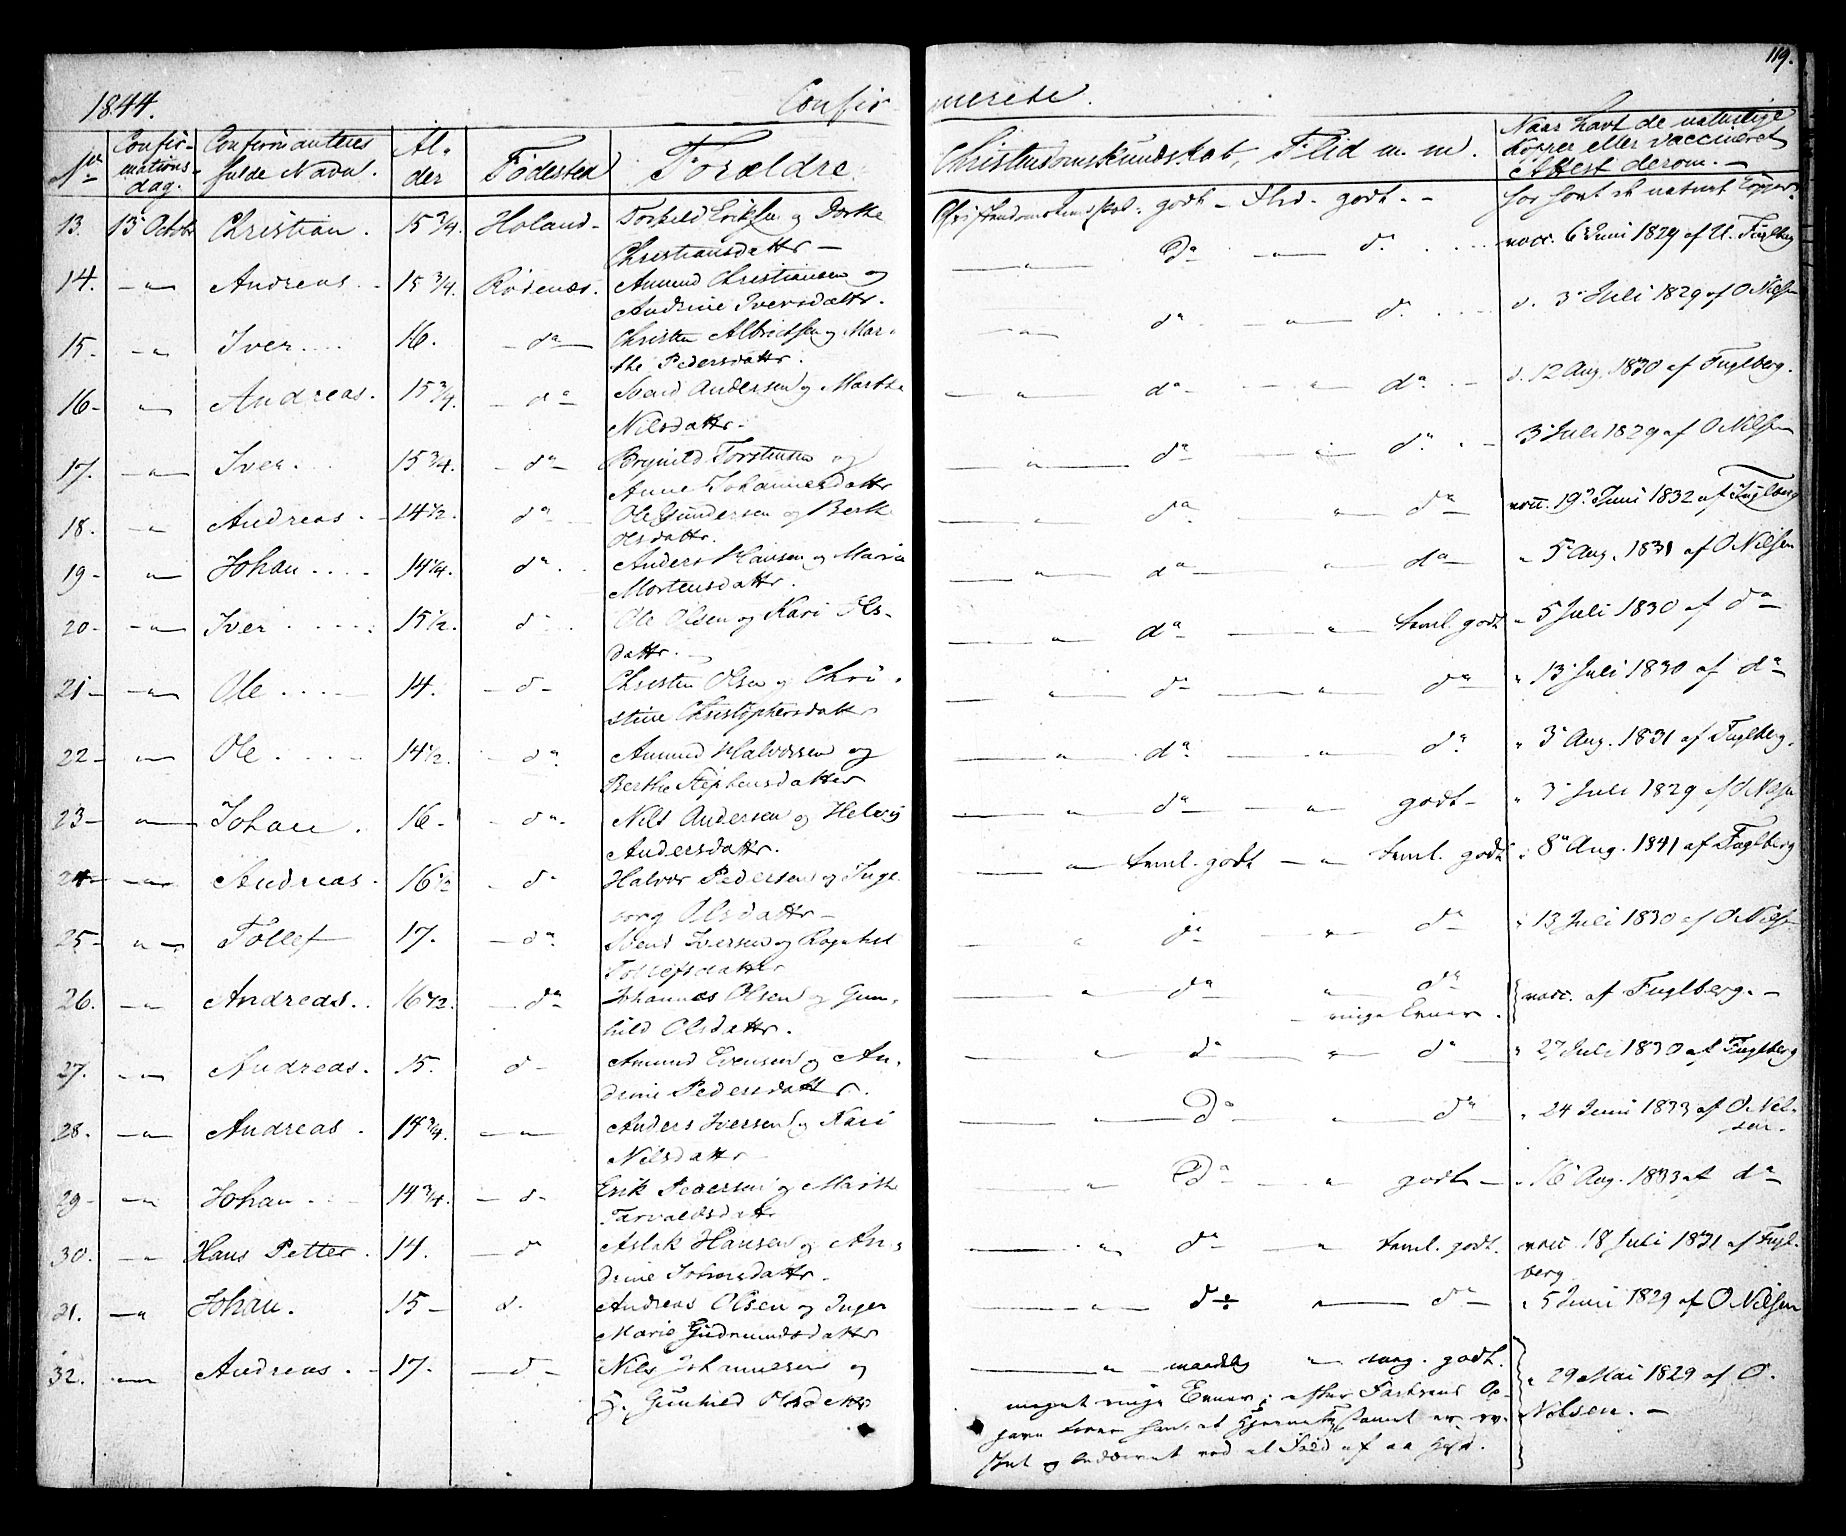 119.
1844. Confirmerede.
No Confirmations dag. Confirmanternes fulde Navn. Alder Födested Forældre Christendomskundskab, Flid m. m. Naar havt de naturlige Kopper eller vaccineret Attest derom. —
13. 13 Octbr Christian. 15 3/4. Höland - Torkild Eriksen og Dorthe Christiansdattr — Christendomskundskab. godt - Flid. godt. -
14. — " Andreas. 15 3/4. Rödenæs. Amund Christiansen og Andrine Iversdattr. da da vacc. 6 Juni 1829 af Fuglberg
15. — " Iver.... 16. da Christen Albrictsen og Marthe Pedersdattr. da d. d. 3 Juli 1829 af O Nilsen
16 - " Andreas. 15 3/4. da Andersen og Marthe Nilsdattr. da da d. 12 Aug. 1830 af Fuglberg.
17. — " Iver... 15 3/4. da Brynild Torstensen og Anne Johannesdattr da da 3 Juli 1829 af O Nilsen
18. " Andreas. 14 1/2. da Ole Gundersen og Berthe Olsdattr. da da vacc. 19 Juni 1832 af Fuglberg
19 - " Johan.... 14 1/4. da Anders Hansen og Maria Mortensdattr. da da " 5 Aug. 1831 af O Nilsen
20 - " Iver..... 15 1/2. d Ole Olsen og Kari Olsdattr. da teml. godt " 5 Juli 1830 af da
21 - " Ole.... 14. d Christen Olsen og Christine Christophersdattr da da " 13 Juli 1830 af da
22 - " Ole..... 14 1/2. da Amund Halvorsen og Berthe Stephensdatter da da " 3 Aug. 1831 af Fuglberg.
23 - " Johan. 16 - da Nils Andersen og Helvig Andersdattr. da godt - " 3 Juli 1829 af O Nilsen
24 - " Andreas. 16 1/2 d Halvor Pedersen og Ingeborg Olsdattr - teml. godt teml. godt " 8 Aug. 1841 af Fuglberg
25 - " Tollef 17. da Svend Iversen og Ragnhild Tollefsdatter da da " 13 Juli 1830 af O Nilsen
26. " Andreas.. 16 1/2. da Johannes Olsen og Gunhild Olsdattr. da da ringe Evner. vacc. af Fuglberg. -
27. " Andreas. 15. d Amund Evensen og Andrine Pedersdattr. da da " 27 Juli 1830 af Fuglberg
28. " Andreas. 14 3/4. " Anders Iversen og Kari Nilsdattr da da " 24 Juni 1833 af O Nilsen.
29 - " Johan. 14 3/4. d Erik Pedersen og Marthe Tarvaldsdattr da godt - " 16 Aug. 1833 af da
30. " Hans Petter. 14. d Aslak Hansen og Andrine Johnsdattr. da teml. godt. vacc. 18 Juli 1831 af Fuglberg
31. " Johan. 15 - d. Andreas Olsen og Inger Marie Gudmundsdattr da da " 5 Juni 1829 af O Nilsen
32. " Andreas. 17. d Nils Johannesen og Gunhild Olsdattr " maadelig " godt.
meget ringe Evner; efter Faderens Opgave
" 29 Mai 1829 af O. Nilsen. -